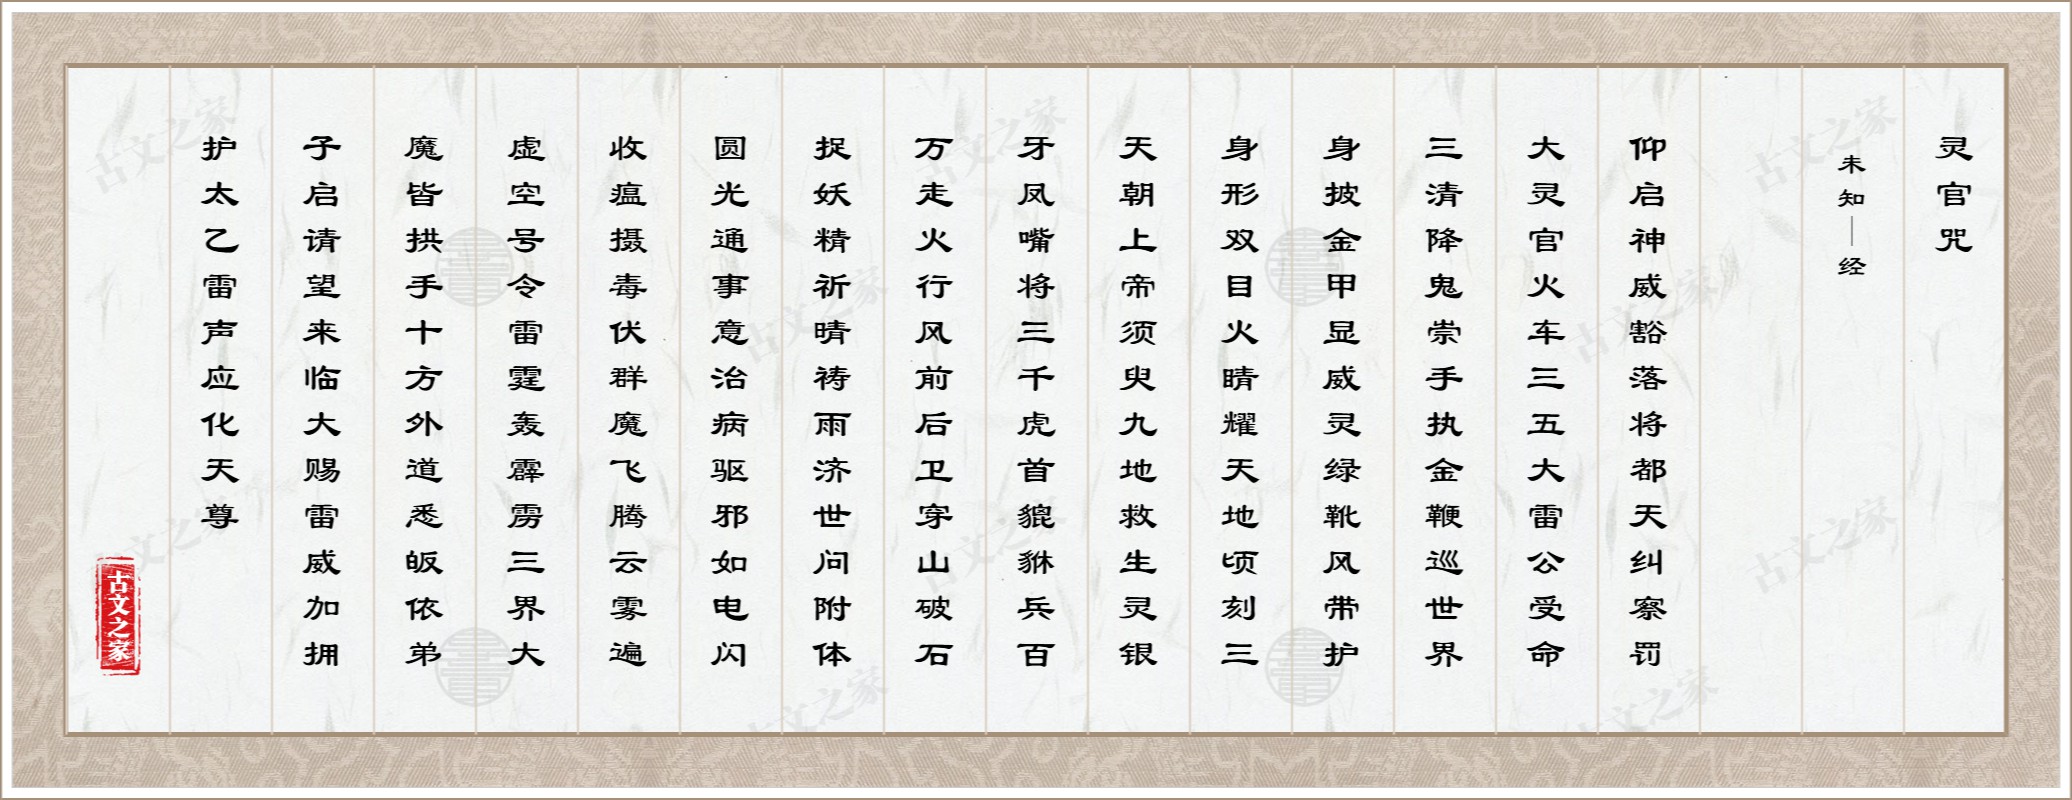 灵官咒
未知｜经
仰启神威豁落将都天纠察罚
大灵官火车三五大雷公受命
三清降鬼崇手执金鞭巡世界
身披金甲显威灵绿靴风带护
身形双目火睛耀天地顷刻三
天朝上帝须臾九地救生灵银
牙凤嘴将三千虎首貔貅兵百
万走火行风前后卫穿山破石
捉妖精祈晴祷雨济世问附体
圆光通事意治病驱邪如电闪
收瘟摄毒伏群魔飞腾云雾遍
虚空号令雷霆轰霹雳三界大
魔皆拱手十方外道悉皈依弟
子启请望来临大赐雷威加拥
护太乙雷声应化天尊
古文之家